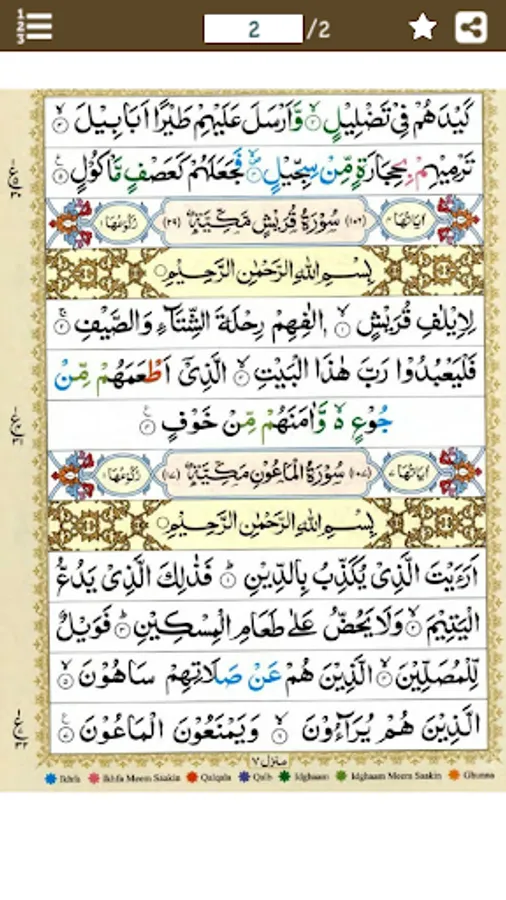 2 /2
كَيْدَهُمْ فِيْ تَضْلِيْلٍ ۙ۲ وَّاَرْسَلَ عَلَيْهِمْ طَيْرًا اَبَابِيْلَ ۙ۳
تَرْمِيْهِمْ بِحِجَارَةٍ مِّنْ سِجِّيْلٍ ۙ۴ فَجَعَلَهُمْ كَعَصْفٍ مَّاْكُوْلٍ ۵
اٰيَاتُهَا ۴ (۱۰۶) سُوْرَةُ قُرَيْشٍ مَكِّيَّةٌ (۲۹) رُكُوْعُهَا ۱
بِسْمِ اللّٰهِ الرَّحْمٰنِ الرَّحِيْمِ
لِاِيْلٰفِ قُرَيْشٍ ۙ۱ اٖلٰفِهِمْ رِحْلَةَ الشِّتَآءِ وَالصَّيْفِ ۚ۲
فَلْيَعْبُدُوْا رَبَّ هٰذَا الْبَيْتِ ۙ۳ الَّذِيْٓ اَطْعَمَهُمْ مِّنْ
جُوْعٍ ۙ۬ وَّاٰمَنَهُمْ مِّنْ خَوْفٍ ۴
اٰيَاتُهَا ۷ (۱۰۷) سُوْرَةُ الْمَاعُوْنِ مَكِّيَّةٌ (۱۷) رُكُوْعُهَا ۱
بِسْمِ اللّٰهِ الرَّحْمٰنِ الرَّحِيْمِ
اَرَءَيْتَ الَّذِيْ يُكَذِّبُ بِالدِّيْنِ ؕ۱ فَذٰلِكَ الَّذِيْ يَدُعُّ
الْيَتِيْمَ ۙ۲ وَلَا يَحُضُّ عَلٰى طَعَامِ الْمِسْكِيْنِ ؕ۳ فَوَيْلٌ
لِّلْمُصَلِّيْنَ ۙ۴ الَّذِيْنَ هُمْ عَنْ صَلَاتِهِمْ سَاهُوْنَ ۙ۵
الَّذِيْنَ هُمْ يُرَآءُوْنَ ۙ۶ وَيَمْنَعُوْنَ الْمَاعُوْنَ ۷
منزل ۷
Ikhfa Ikhfa Meem Saakin Qalqala Qalb Idghaam Idghaam Meem Saakin Ghunna